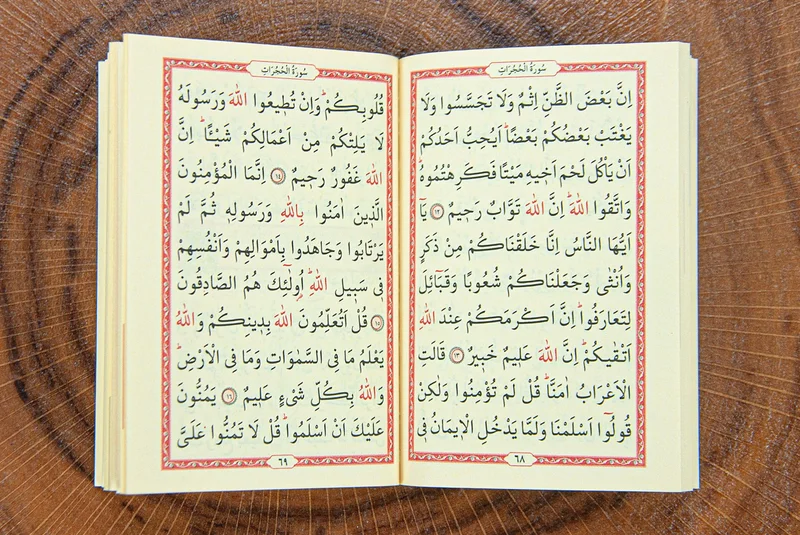 سُورَةُ الْحُجُرَاتِ
اِنَّ بَعْضَ الظَّنِّ اِثْمٌ وَلَا تَجَسَّسُوا وَلَا
يَغْتَبْ بَعْضُكُمْ بَعْضًاۜ اَيُحِبُّ اَحَدُكُمْ
اَنْ يَأْكُلَ لَحْمَ اَخٖيهِ مَيْتًا فَكَرِهْتُمُوهُۜ
وَاتَّقُوا اللّٰهَۜ اِنَّ اللّٰهَ تَوَّابٌ رَحٖيمٌ ﴿١٢﴾ يَٓا
اَيُّهَا النَّاسُ اِنَّا خَلَقْنَاكُمْ مِنْ ذَكَرٍ
وَاُنْثٰى وَجَعَلْنَاكُمْ شُعُوبًا وَقَبَٓائِلَ
لِتَعَارَفُواۜ اِنَّ اَكْرَمَكُمْ عِنْدَ اللّٰهِ
اَتْقٰيكُمْۜ اِنَّ اللّٰهَ عَلٖيمٌ خَبٖيرٌ ﴿١٣﴾ قَالَتِ
الْاَعْرَابُ اٰمَنَّاۜ قُلْ لَمْ تُؤْمِنُوا وَلٰكِنْ
قُولُٓوا اَسْلَمْنَا وَلَمَّا يَدْخُلِ الْاٖيمَانُ فٖى
٦٨
سُورَةُ الْحُجُرَاتِ
قُلُوبِكُمْۜ وَاِنْ تُطٖيعُوا اللّٰهَ وَرَسُولَهُ
لَا يَلِتْكُمْ مِنْ اَعْمَالِكُمْ شَيْـًٔاۜ اِنَّ
اللّٰهَ غَفُورٌ رَحٖيمٌ ﴿١٤﴾ اِنَّمَا الْمُؤْمِنُونَ
الَّذٖينَ اٰمَنُوا بِاللّٰهِ وَرَسُولِهٖ ثُمَّ لَمْ
يَرْتَابُوا وَجَاهَدُوا بِاَمْوَالِهِمْ وَاَنْفُسِهِمْ
فٖى سَبٖيلِ اللّٰهِۜ اُولٰٓئِكَ هُمُ الصَّادِقُونَ
﴿١٥﴾ قُلْ اَتُعَلِّمُونَ اللّٰهَ بِدٖينِكُمْ وَاللّٰهُ
يَعْلَمُ مَا فِى السَّمٰوَاتِ وَمَا فِى الْاَرْضِۜ
وَاللّٰهُ بِكُلِّ شَىْءٍ عَلٖيمٌ ﴿١٦﴾ يَمُنُّونَ
عَلَيْكَ اَنْ اَسْلَمُواۜ قُلْ لَا تَمُنُّوا عَلَىَّ
٦٩